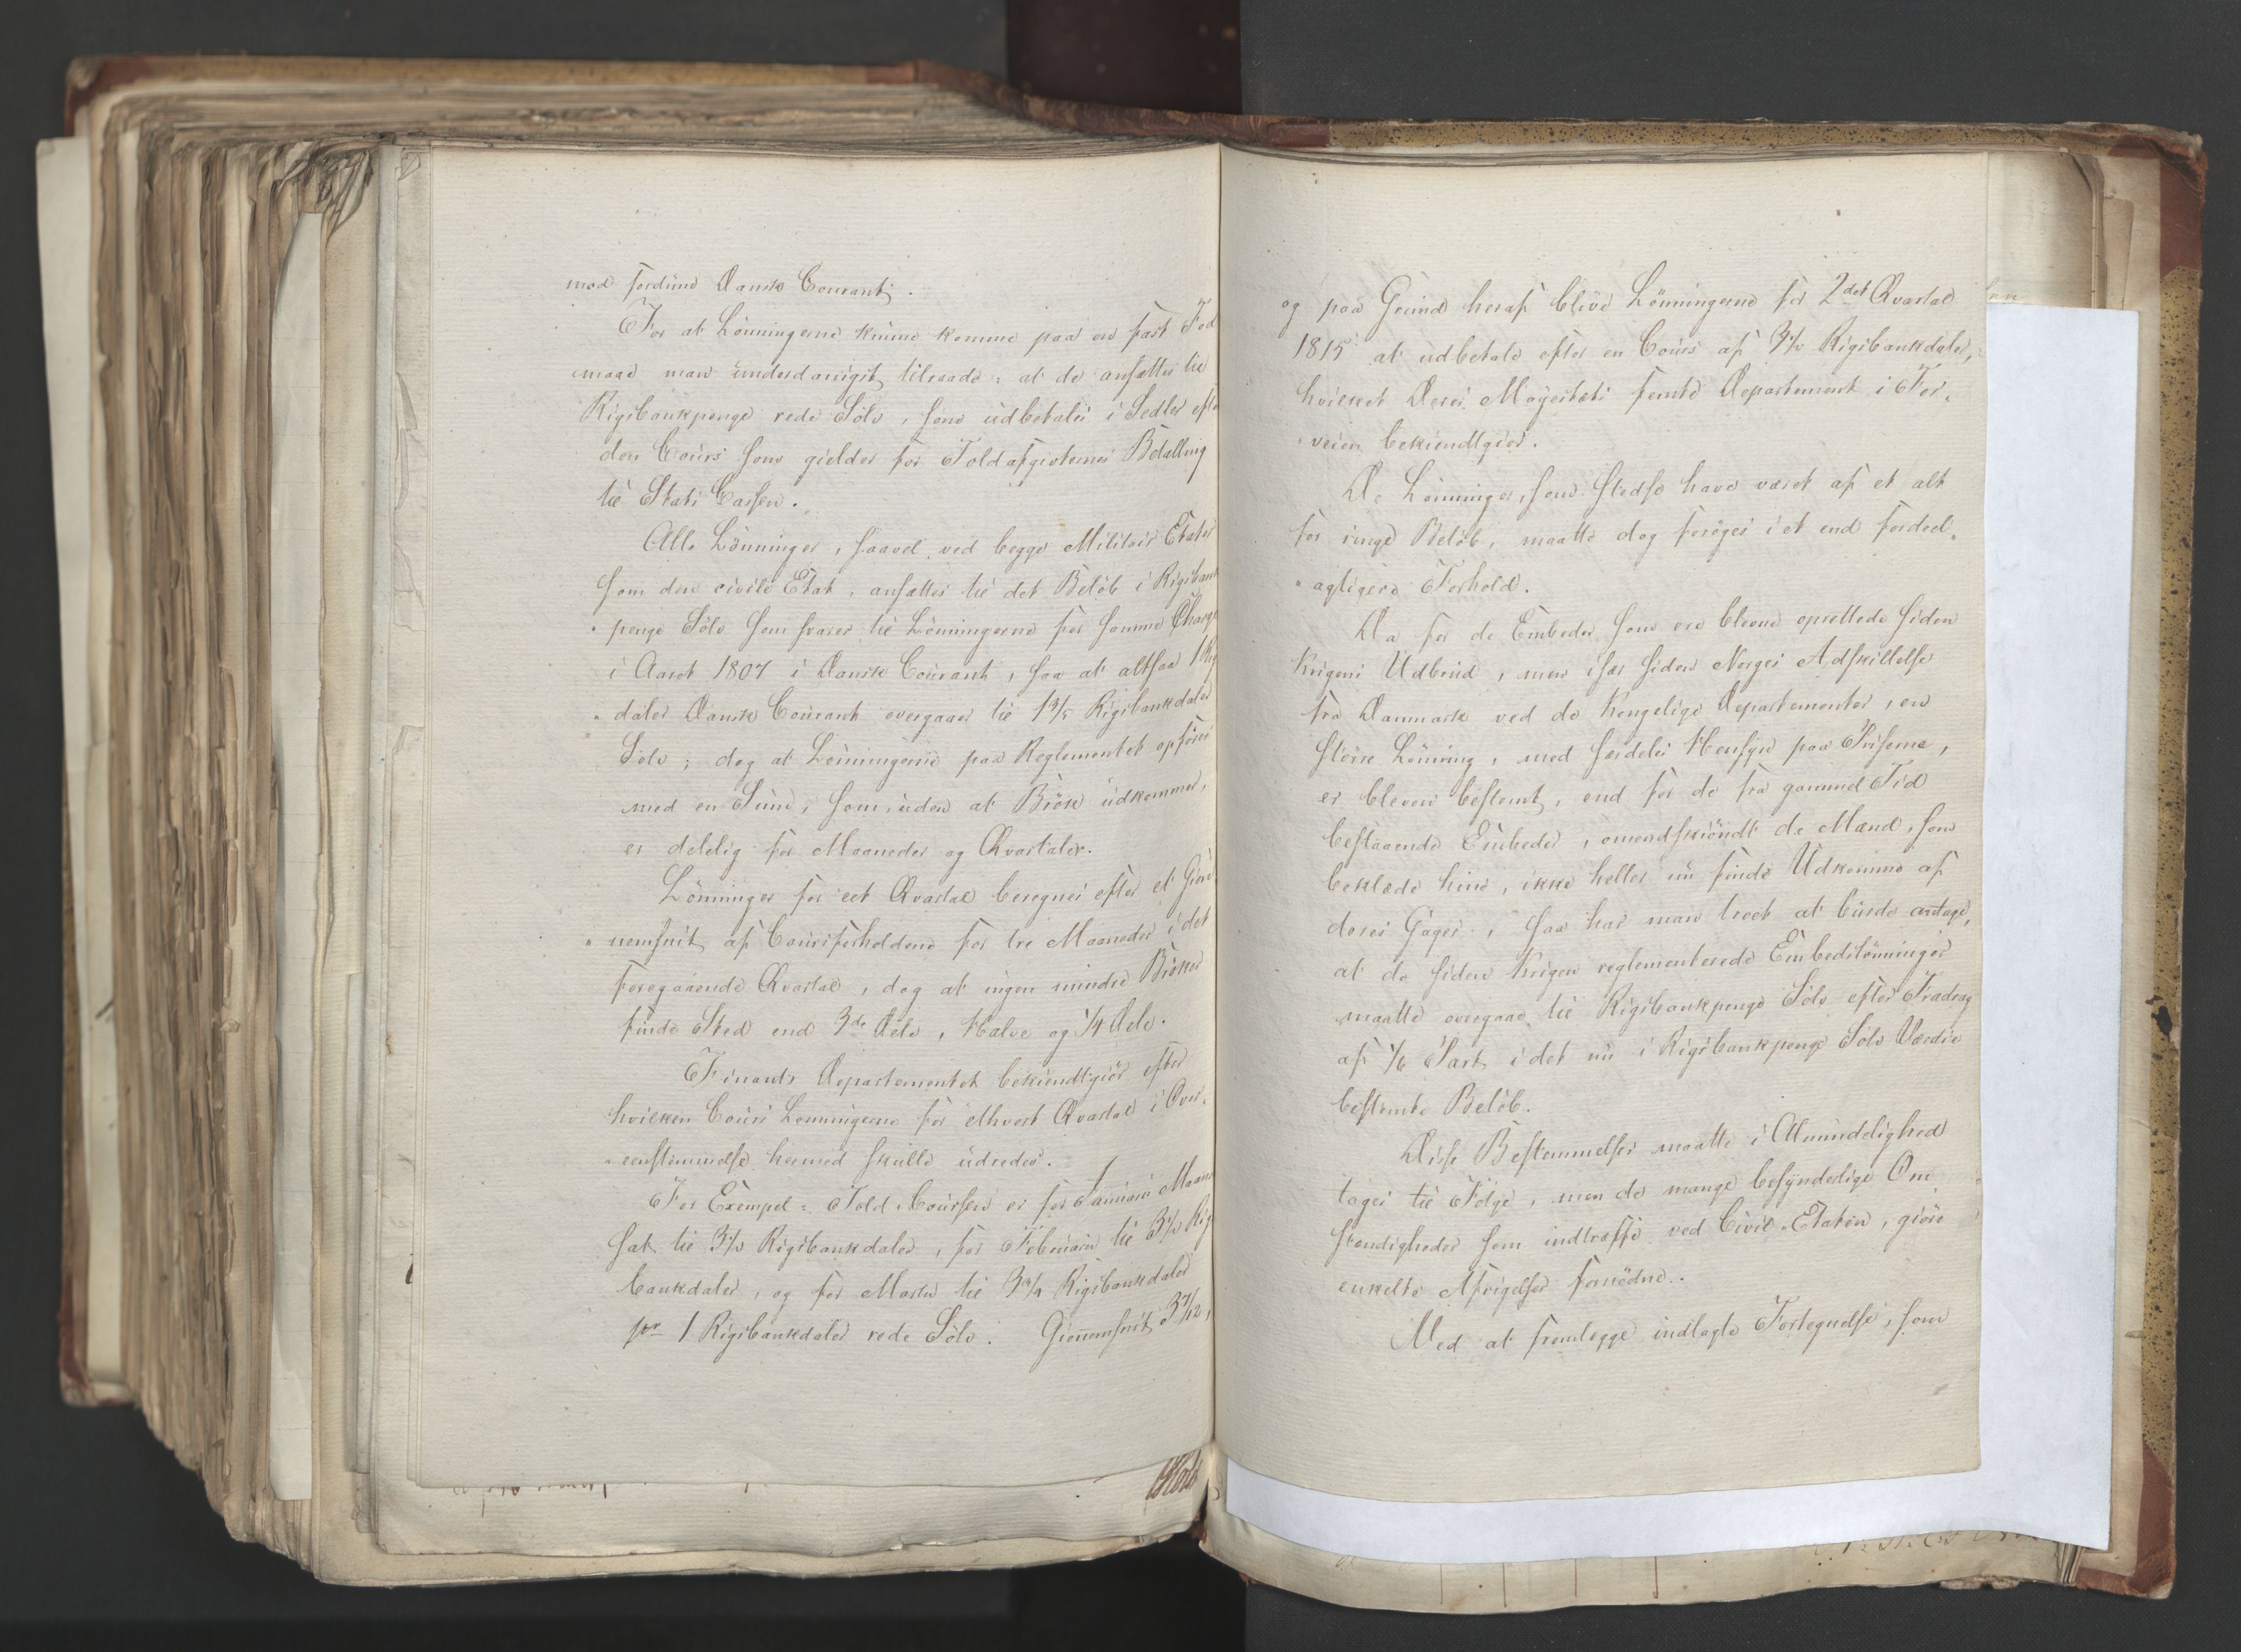 mod fordum Dansk Courant.
For at Lönningerne kunne komme paa en fast Fod
maae man underdanigst tilraade: at de ansættes til
Rigsbankpenge rede Sölv, som udbetales i Sedler efter
den Cours som gielder for Toldafgivternes Betalling
til Stats Cassen.
Alle Lönninger, saavel ved begge Militair Etater
som den civile Etat, ansættes til det Belöb i Rigsbank
penge Sölv som svarer til Lönningerne for samme Charge
i Aaret 1807 i Dansk Courant, saa at altsaa 1 Rigs
daler Dansk Courant overgaaer til 1 3/5 Rigsbankdaler
Sölv; dog at Lönningerne paa Reglementet opföres
med en Sum, som, uden at Brök udkommer,
er delelig for Maaneder og Qvartaler.
Lönninger for eet Qvartal beregnes efter et Gien
nemsnit af Coursforholdene for tre Maaneder i det
foregaaende Qvartal, dog at ingen mindre Bröker
finde Sted end 3de Dele, Halve og 1/4 Dele.
Finants Departementet bekiendtgiör efter
hvilken Cours Lönningerne for ethvert Qvartal i Over-
eensstemmelse hermed skulle udredes.
For Exempel: Told-Coursen er for Januarii Maaned
sat til 3 1/2 Rigsbankdaler, for Februarii til 3 1/2 Rigs
bankdaler, og for Martii til 3 3/4 Rigsbankdaler
pr 1 Rigsbankdaler rede Sölv. Giennemsnit 3 7/12,
og paa Grund heraf blive Lönningerne for 2det Qvartal
1815 at udbetale efter en Cours af 3 1/2 Rigsbankdaler,
hvilket Deres Majestæts femte Departement i For-
veien bekiendtgiör.
De Lönninger, som stedse have været af et alt
for ringe Belöb, maatte dog foröges i et end fordeel-
agtigere Forhold.
Da for de Embeder som ere blevne oprettede siden
Krigens Udbrud, men især siden Norges Adskillelse
fra Danmark ved de Kongelige Departementer, en
större Lönning, med særdeles Hensyn paa Priserne,
er bleven bestemt, end for de fra gammel Tid
bestaaende Embeder, omendskiöndt de Mænd, som
beklæde hine, ikke heller nu finde Udkomme af
deres Gager, saa har man troet at burde antage,
at de siden Krigen reglementerede Embedslönninger
maatte overgaae til Rigsbankpenge Sölv efter Fradrag
af 1/6 Part i det nu i Rigsbankpenge Sölv Værdie
bestemte Belöb.
Disse Bestemmelser maatte i Almindelighed
tages til Fölge, men de mange besynderlige Om
stændigheder som indtræffe ved Civil-Etaten, giöre
enkelte Afvigelser fornödne.
Ved at fremlægge indlagte Fortegnelse, som